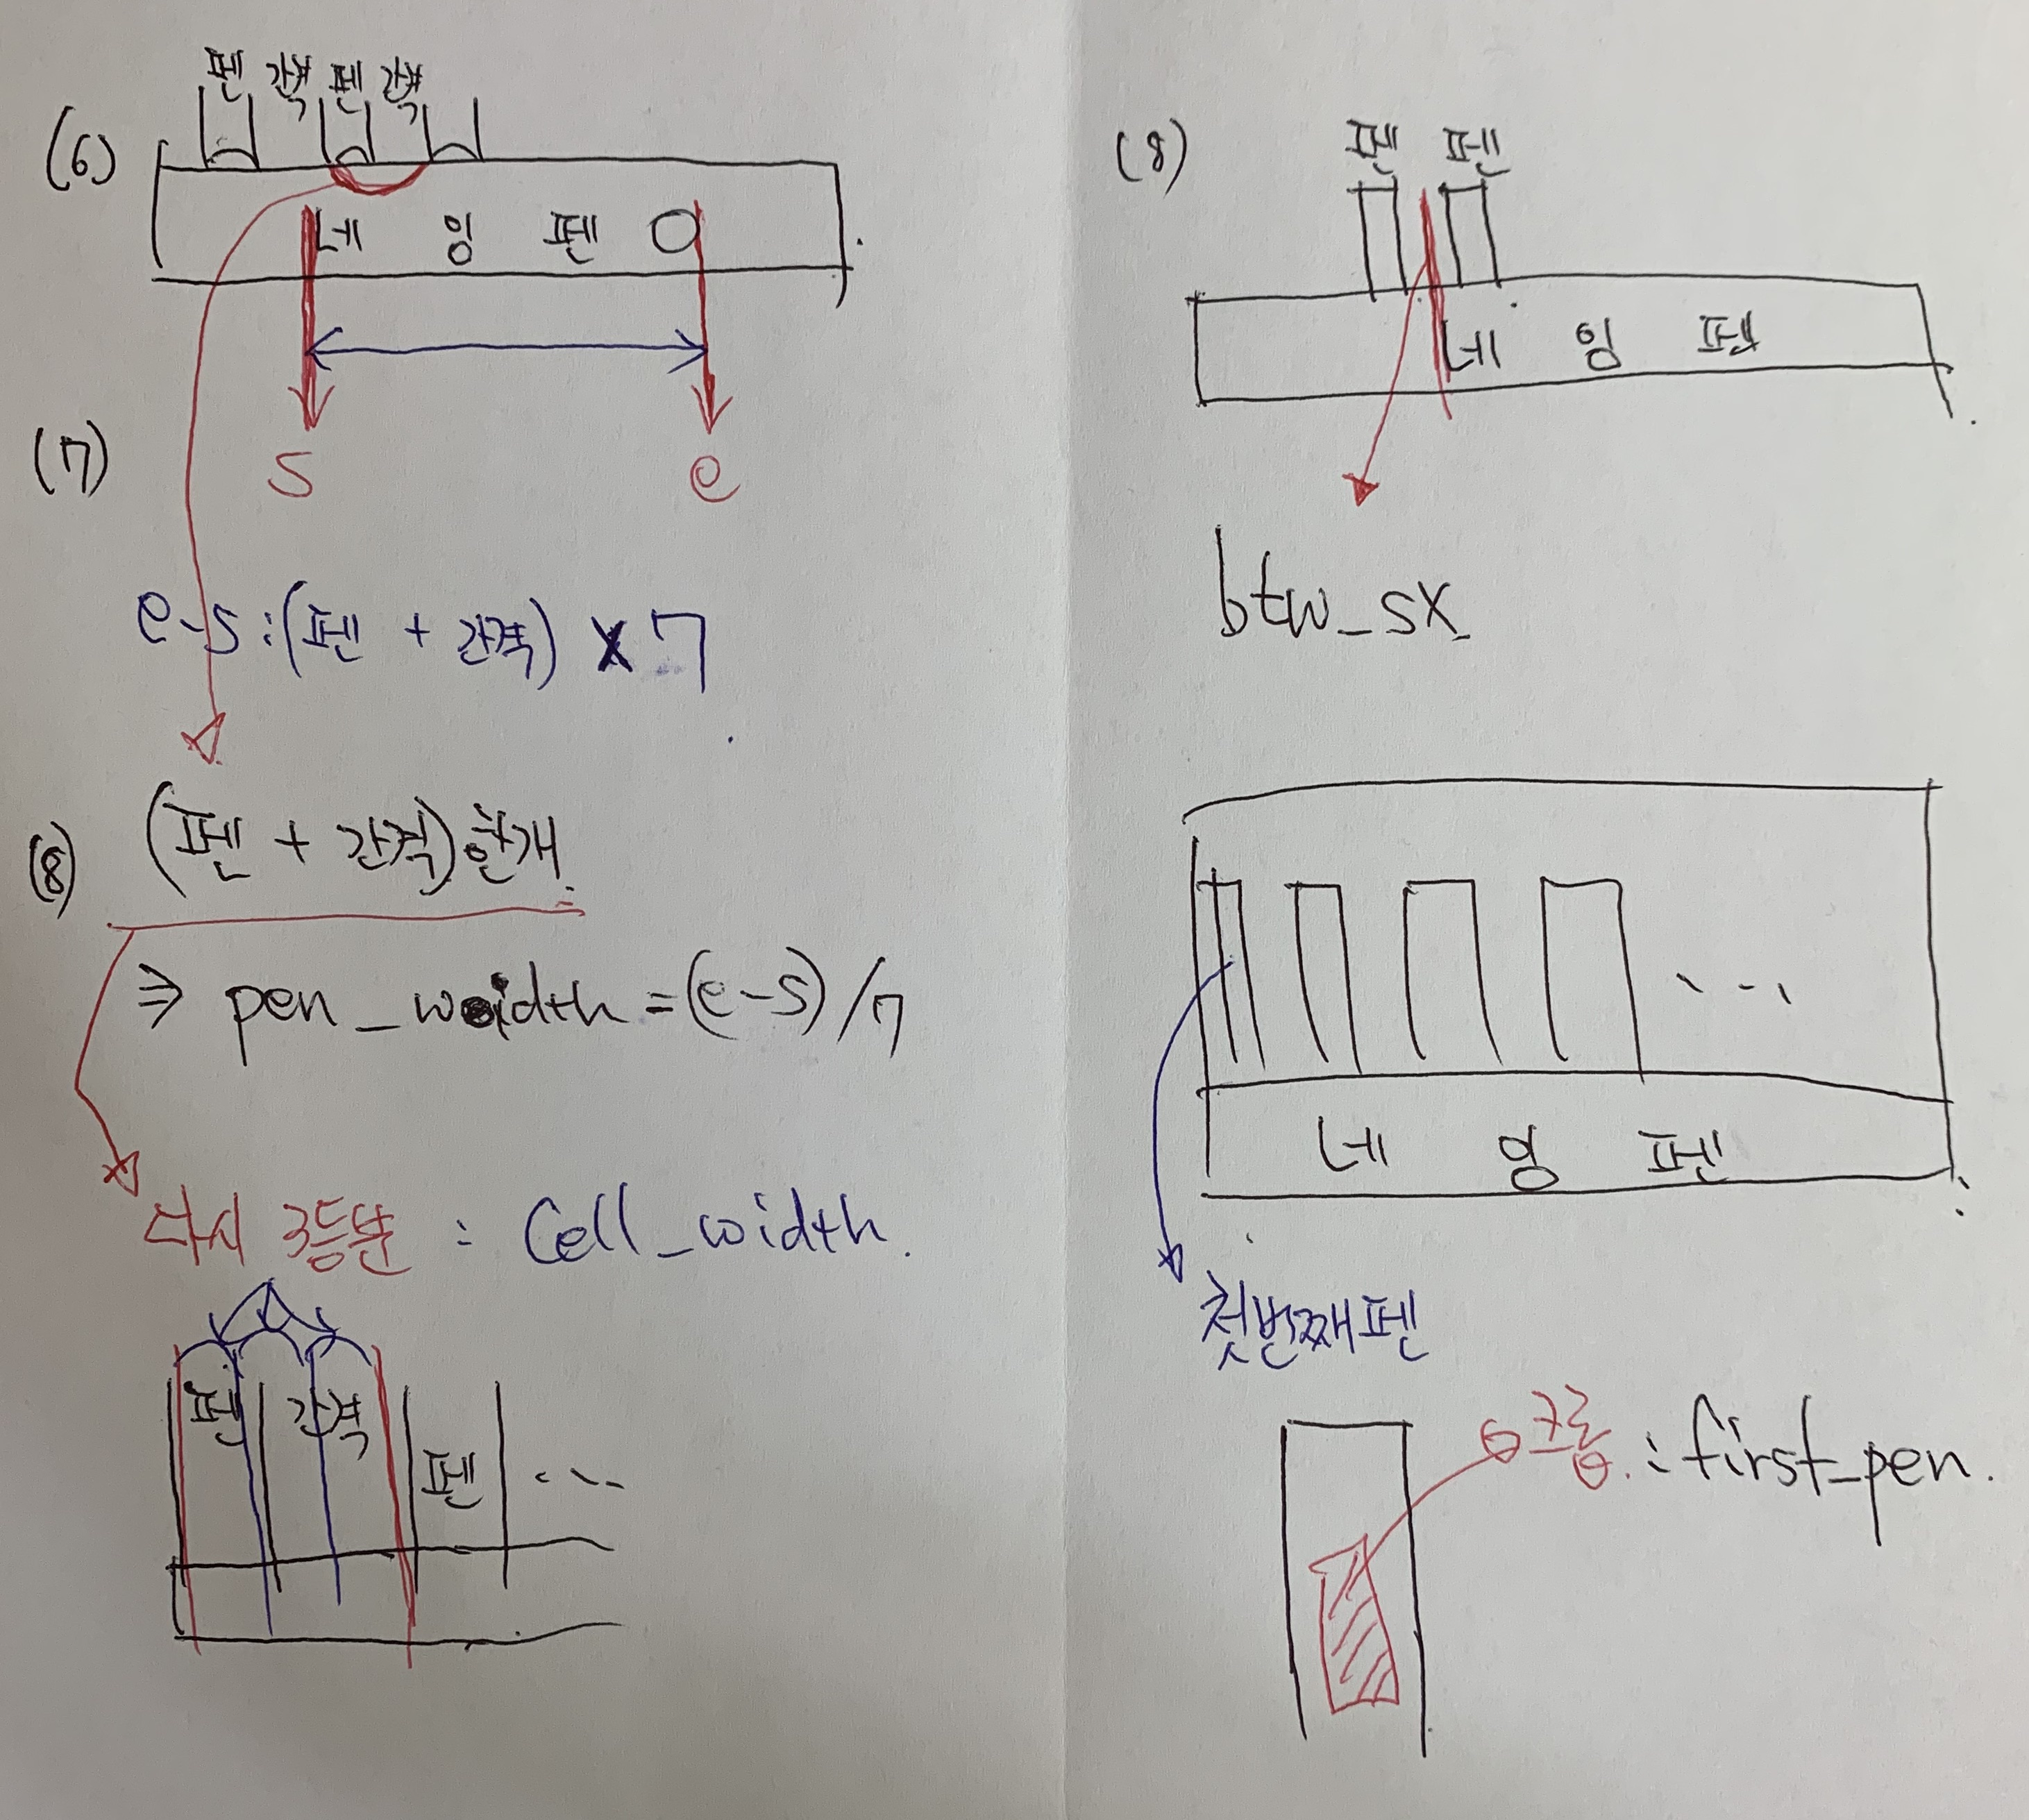 펜 간격 펜 간격
(6)
네 임 펜 O
(7)
s e
e-s : (펜 + 간격) x 7
(8) (펜 + 간격) 한개
⇒ pen_width = (e-s)/7
다시 3등분 : Cell_width.
펜 간격 펜 ...
(8)
펜 펜
네 임 펜
btw_sx
...
네 임 펜
첫번째펜
: first_pen.